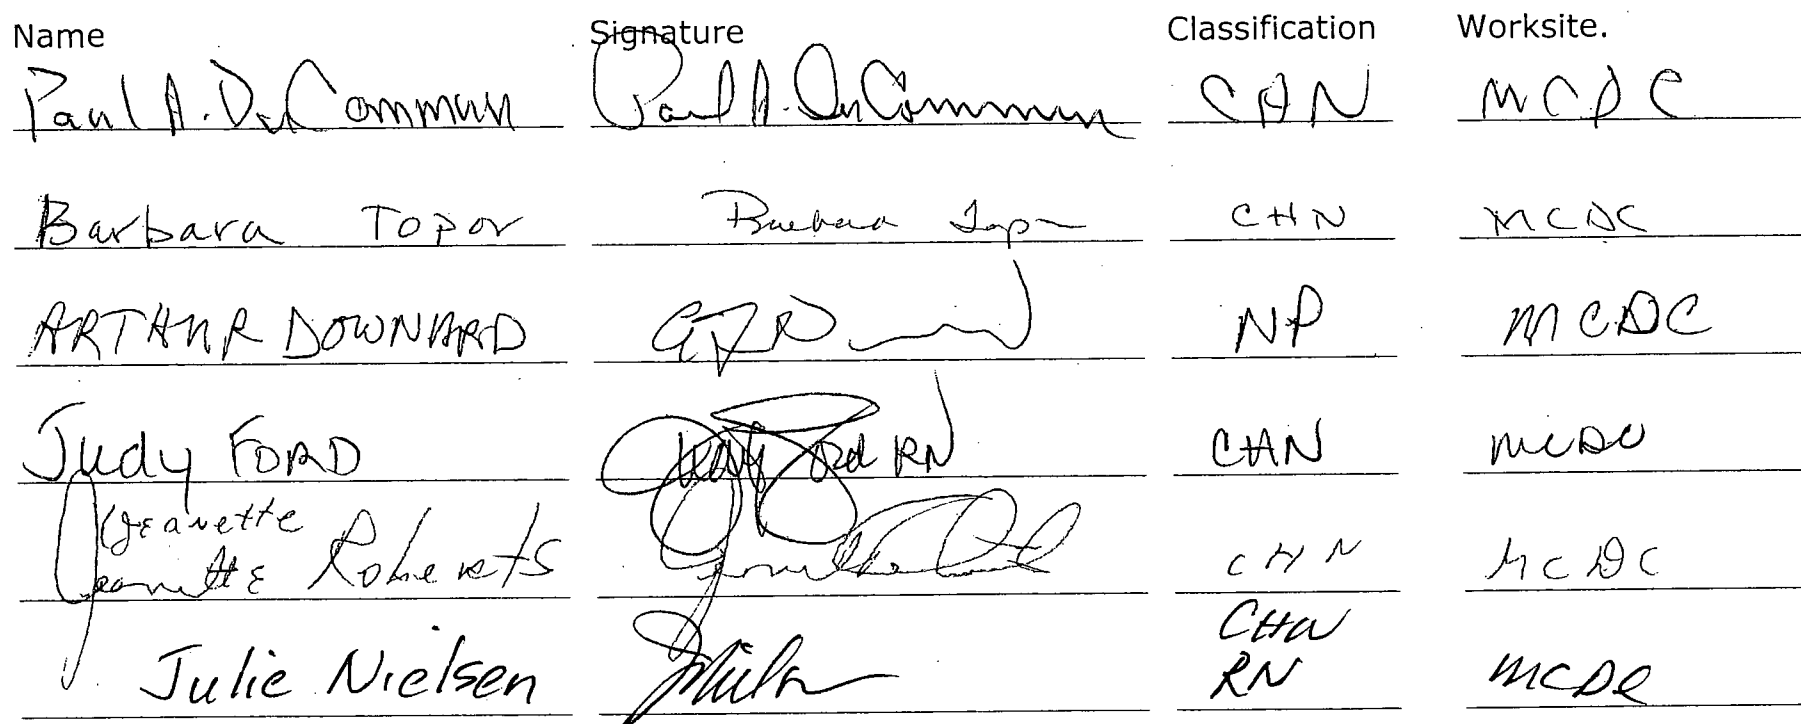 Name Signature Classification Worksite.
Paul A. DuCommun Paul A. DuCommun CHN MCDC
Barbara Topor Barbara Topor CHN MCDC
ARTHUR DOWNARD NP MCDC
Judy FORD Judy Ford RN CHN MCDC
(Jeanette
Jeanette Roberts CHN MCDC
CHN
Julie Nielsen RN MCDC